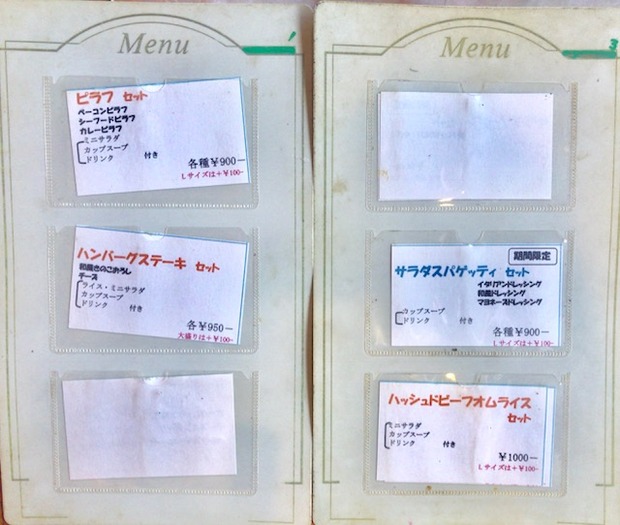 Menu
ピラフ セット
ベーコンピラフ
シーフードピラフ
カレーピラフ
ミニサラダ
カップスープ
ドリンク 付き
各種¥900-
Lサイズは+¥100-
ハンバーグステーキ セット
和風きのこおろし
チーズ
ライス・ミニサラダ
カップスープ
ドリンク 付き
各¥950-
大盛りは+¥100-
Menu
3
期間限定
サラダスパゲッティ セット
イタリアンドレッシング
和風ドレッシング
マヨネーズドレッシング
カップスープ
ドリンク 付き
各種¥900-
Lサイズは+¥100-
ハッシュドビーフオムライス
セット
ミニサラダ
カップスープ
ドリンク 付き
¥1000-
Lサイズは+¥100-